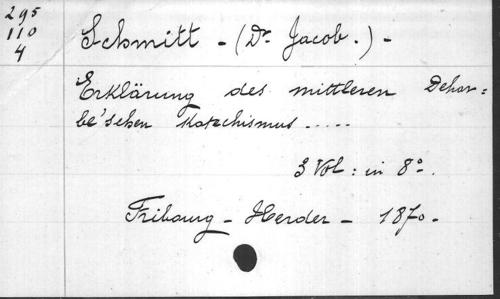 295
110
4
Schmitt - (Dr. Jacob.) -
Erklärung des mittleren Dehar=
be'schen Katechismus .....
3 Vol: in 8°.
Fribourg - Herder - 1870 -